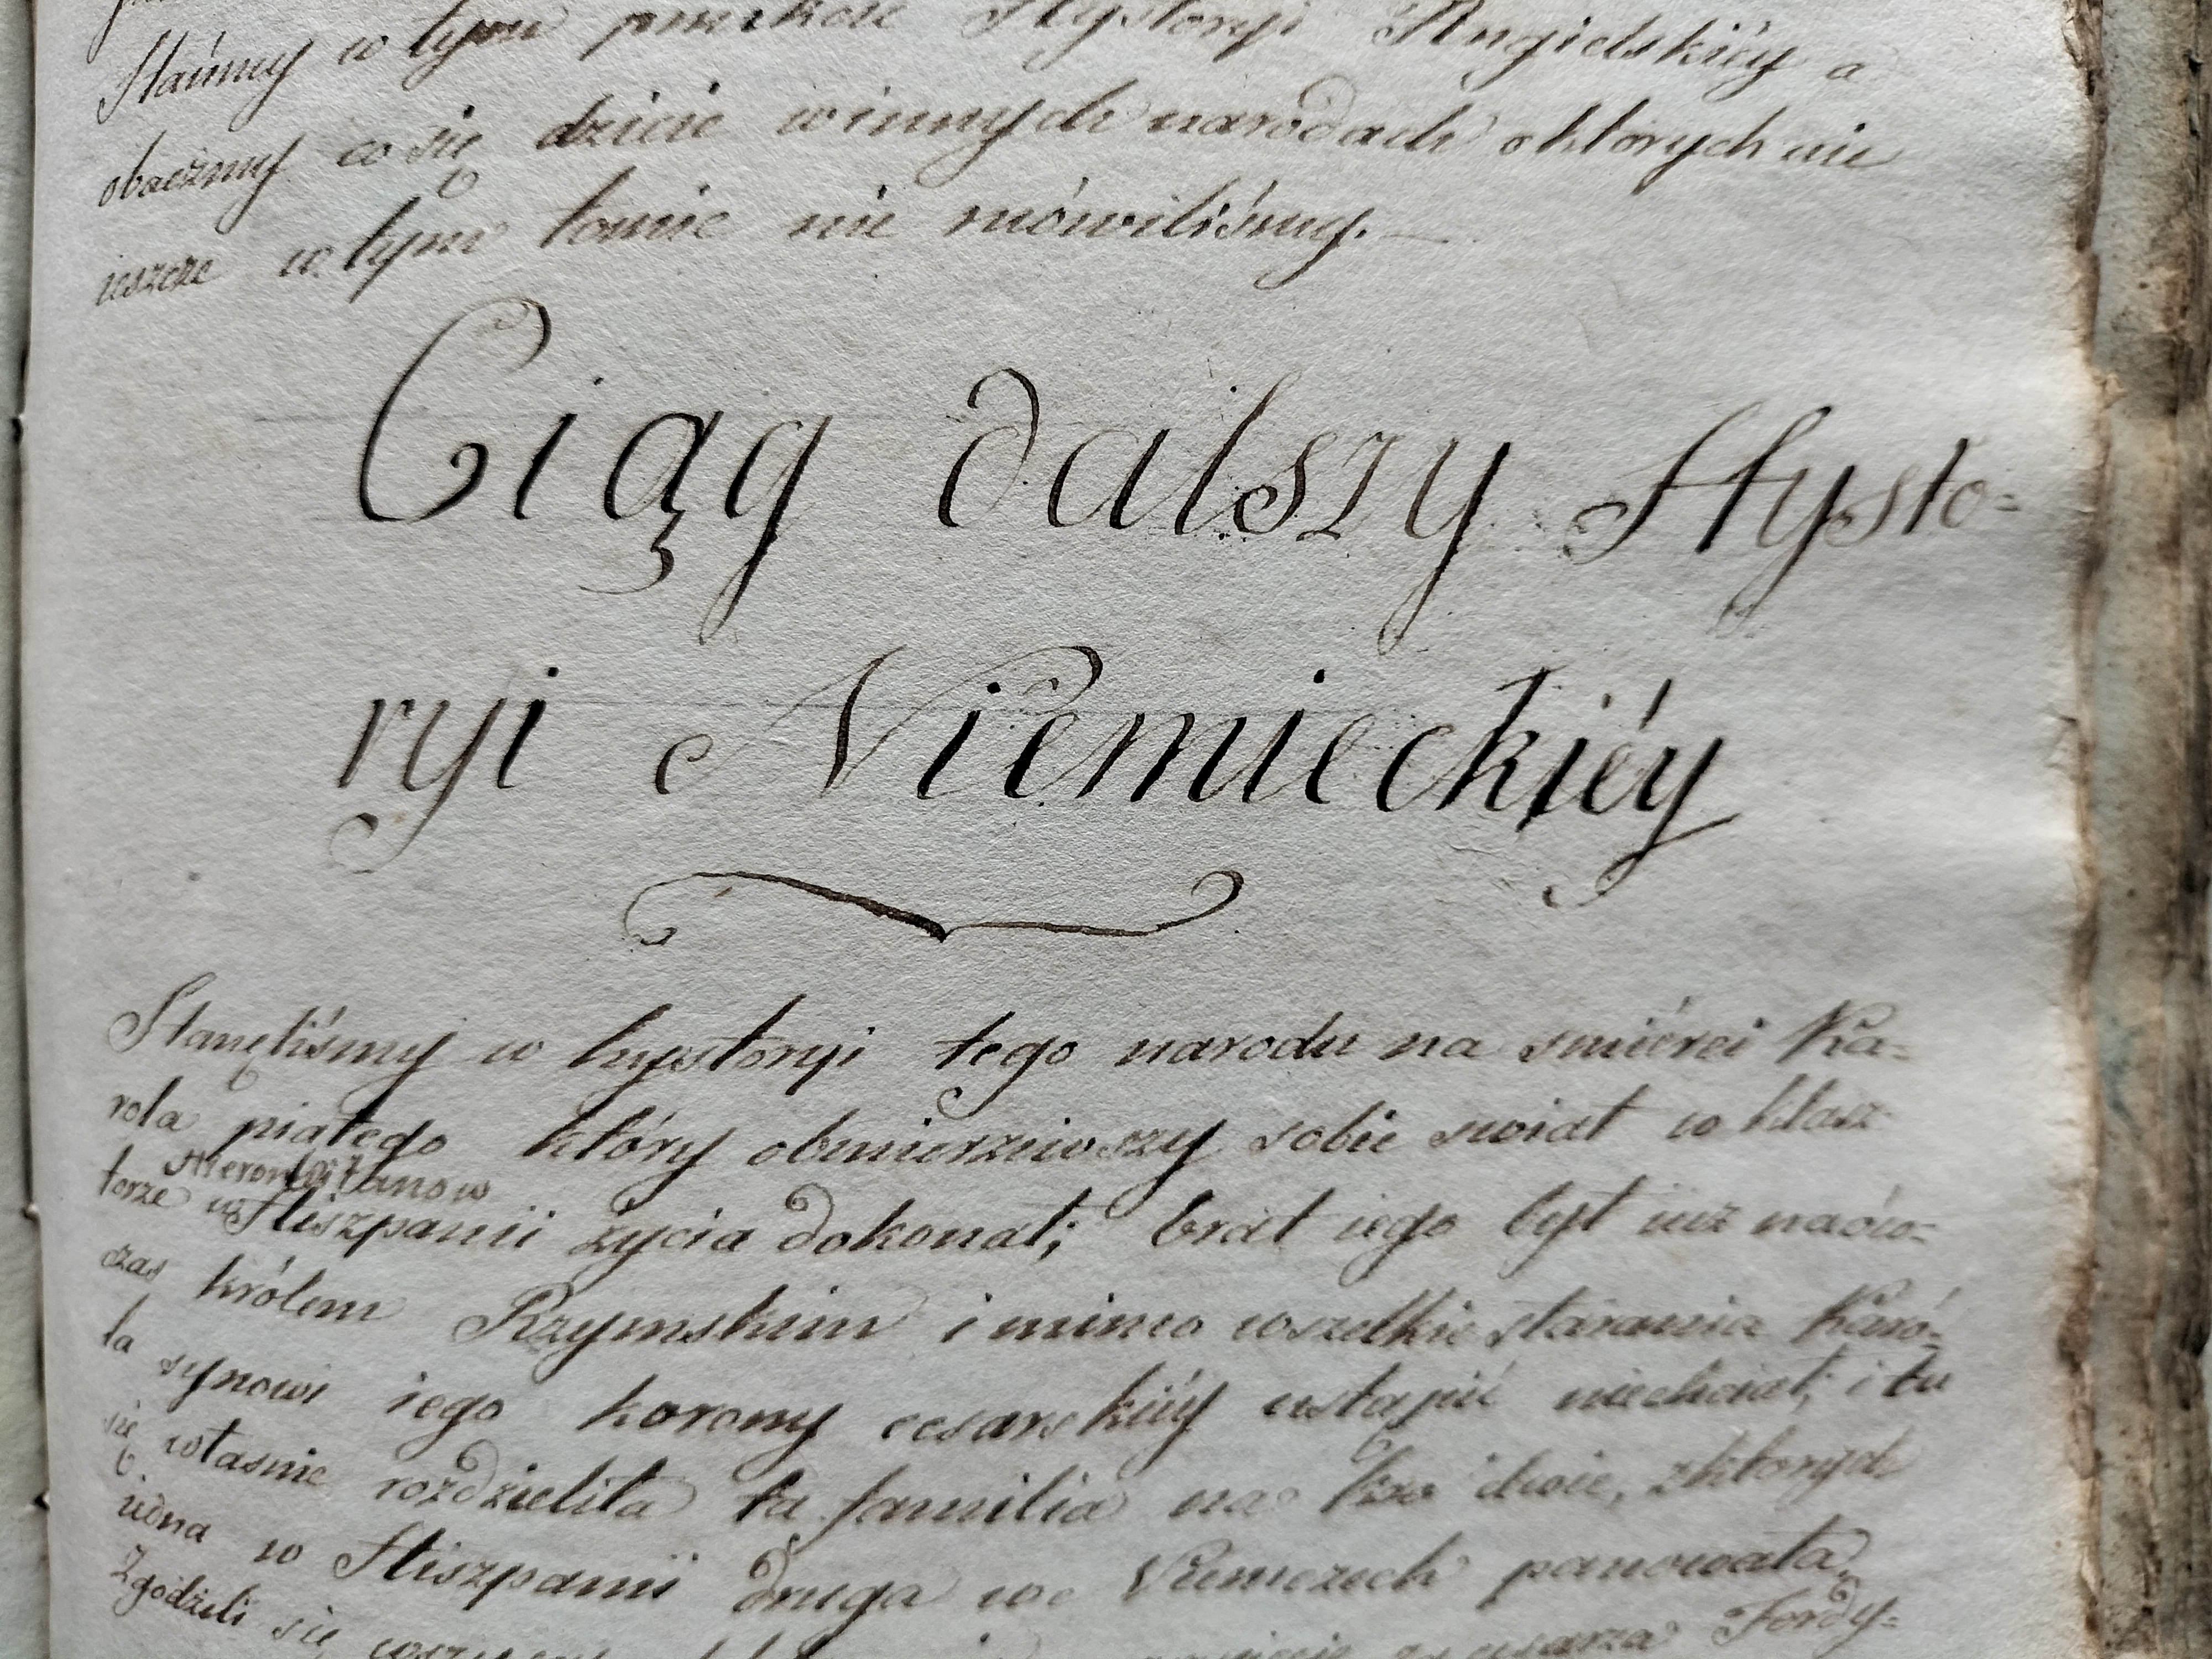 Stańmy w tym punkcie Hystoryi Angielskiéy a
obaczmy co się dzieie winnych narodach októrych nie
ieszcze w tym tomie nie mówiliśmy. —
Ciąg dalszy Hysto-
ryi Niemieckiéy
Stanęliśmy w hystoryi tego narodu na smiérci Ka-
rola piątego który obmierziwszy sobie swiat w klasz-
Hieronimitanow
torze w Hiszpanii życia dokonał; brat iego był iuż naów-
czas królem Rzymskim i mimo wszelkie starania Karó-
la synowi iego korony cesarskiéy ustąpić niechciał; i tu
się własnie rozdzieliła ta familia na dwie, zktorych
iedna w Hiszpanii druga we Niemczech panowała.
Zgodzili się cesarza Ferdy-